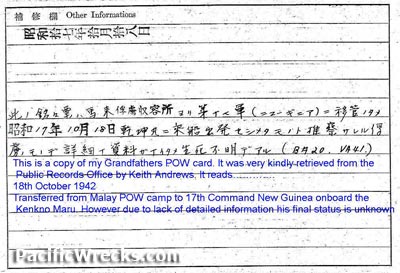 補修欄 Other Informations
昭和拾七年拾月拾八日
此ノ銘々票ハ馬来俘虜収容所ヨリ第十七軍(ニューギニア)ニ移管ノタメ
昭和17年10月18日乾坤丸ニ乗船出発セシメタモノト推察サレル俘
虜モノデ詳細ノ資料ガナイタメ生死不明デアル (BA20. VA41.)
This is a copy of my Grandfathers POW card. It was very kindly retrieved from the
Public Records Office by Keith Andrews. It reads.............
18th October 1942
Transferred from Malay POW camp to 17th Command New Guinea onboard the
Kenkno Maru. However due to lack of detailed information his final status is unknown
PacificWrecks.com